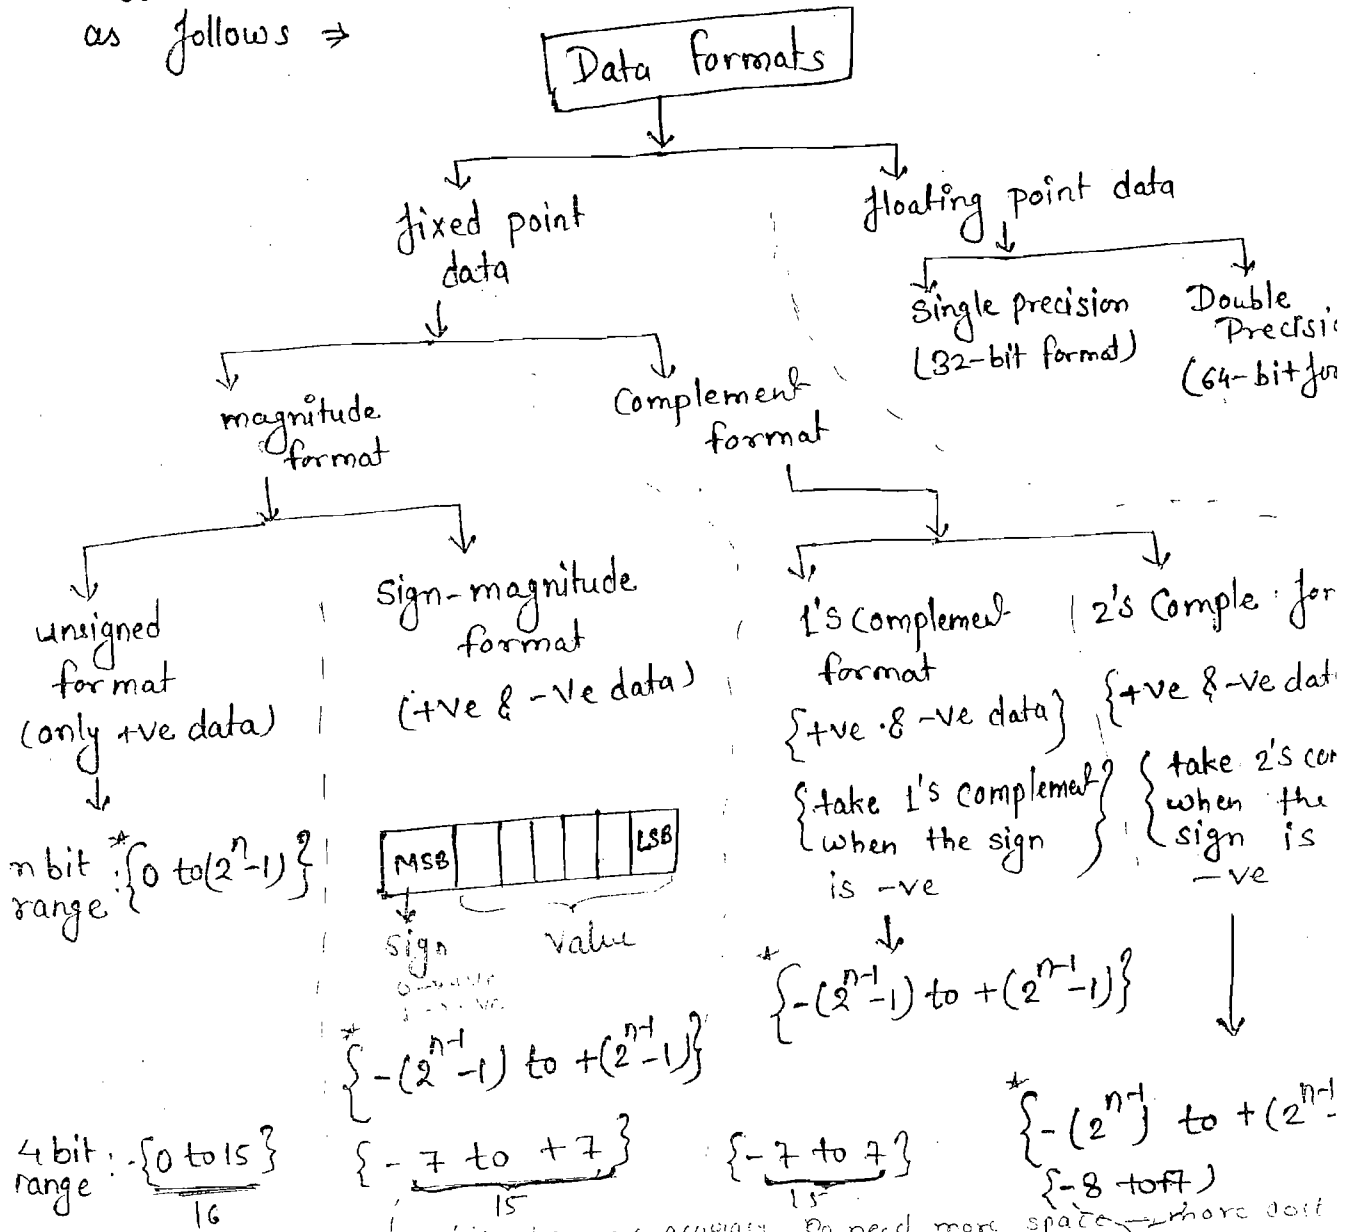 as follows ⇒
Data formats
fixed point
data
floating point data
Single precision
(32-bit format)
Double
Precisi
(64-bit for
magnitude
format
Complement
format
unsigned
format
(only +ve data)
Sign-magnitude
format
(+ve & -ve data)
1's complement
format
{+ve & -ve data}
{take 1's complement
when the sign
is -ve}
2's Comple. for
{+ve & -ve dat
{take 2's co
when the
sign is
-ve
n bit range : *{0 to (2^n-1)}
MSB LSB
sign value
*{-(2^(n-1)-1) to +(2^(n-1)-1)}
*{-(2^(n-1)-1) to +(2^(n-1)-1)}
*{-(2^(n-1)) to +(2^(n-1)-
4 bit range : {0 to 15}
16
{-7 to +7}
15
{-7 to 7}
15
{-8 to +7)
accuracy need more space → more cost